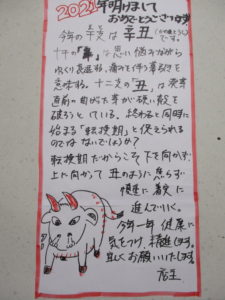 2021年明けまして
おめでとうございます
今年の干支は辛丑(かのとうし)
です。
十干の「辛」は思い悩みながら
ゆっくり衰退する、痛みを伴う幕引きを
意味する。十二支の「丑」は発芽
直前の曲がった芽が硬い殻を
破ろうとしている。終わると同時に
始まる「転換期」と捉えられる
のではないでしょうか?
転換期だからこそ下を向かず
上に向かって丑のように焦らず
慎重に着実に
進んでいく。
今年一年健康に
気をつけ、精進します。
宜しくお願いいたします。
店主